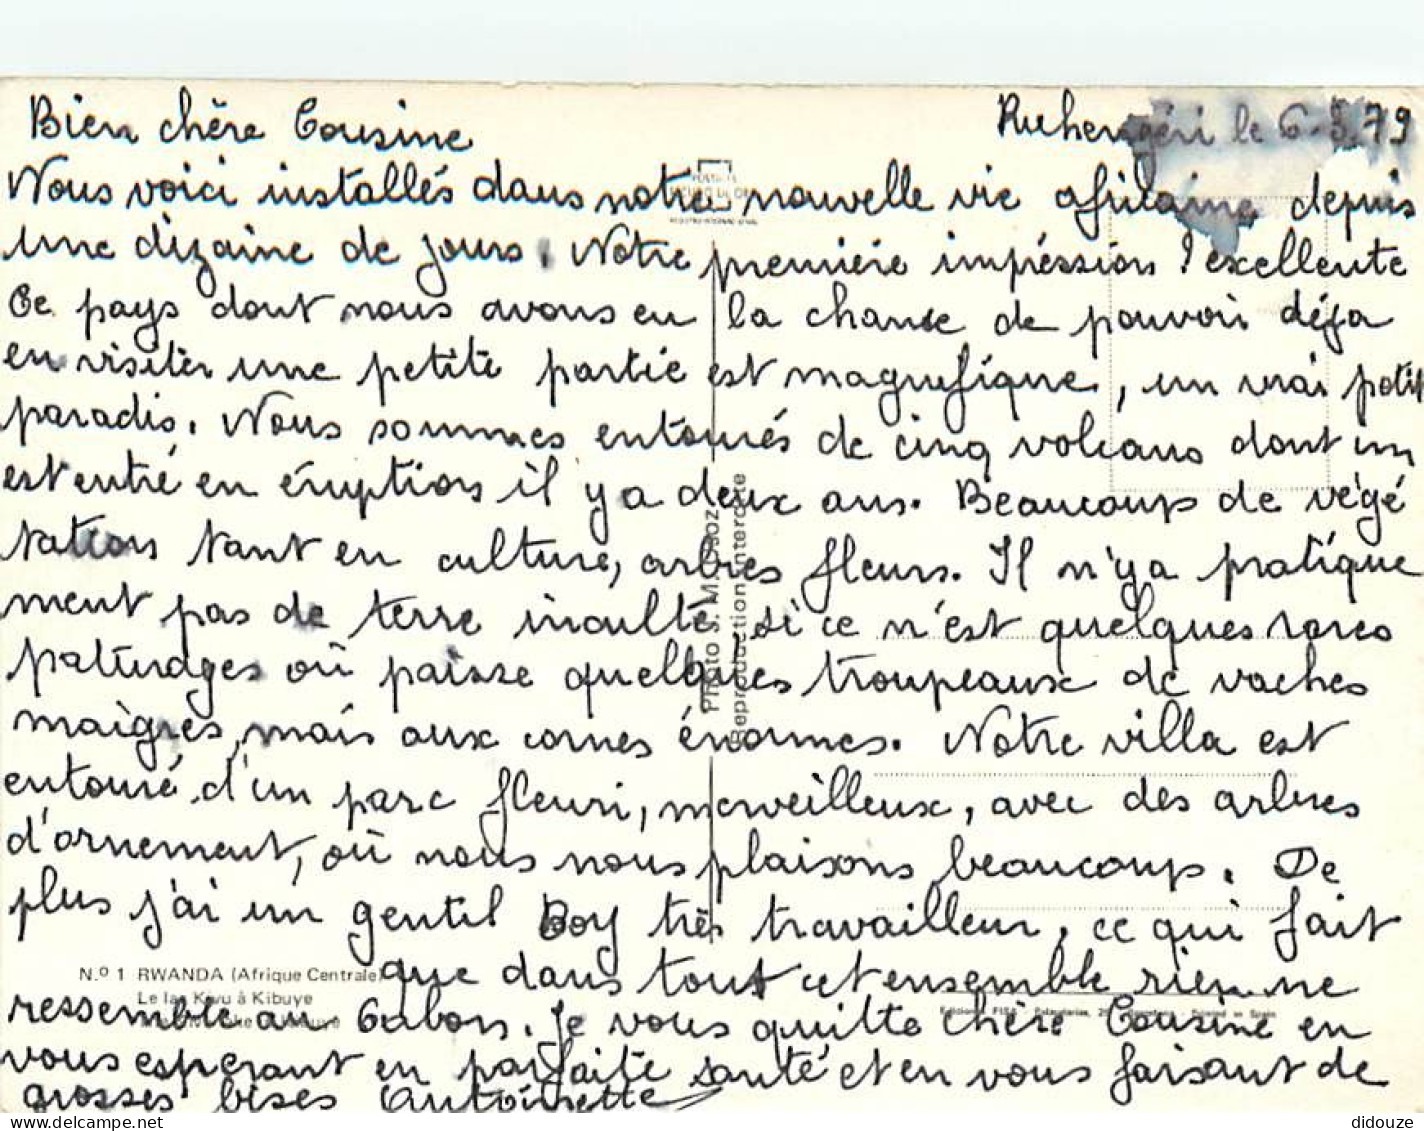 Ruhengéri le 6.3.79
Bien chère Cousine
Nous voici installés dans notre nouvelle vie africaine depuis
une dizaine de jours. Notre première impréssion ! excellente
Ce pays dont nous avons eu la chance de pouvoir déja
en visiter une petite partie est magnifique, un vrai petit
paradis. Nous sommes entourés de cinq volcans dont un
est entré en éruption il y a deux ans. Beaucoup de végé
tation tant en culture, arbres fleurs. Il n'y a pratique
ment pas de terre inculte, si ce n'est quelques rares
paturages où paisse quelques troupeaux de vaches
maigres, mais aux cornes énormes. Notre villa est
entouré d'un parc fleuri, merveilleux, avec des arbres
d'ornement, où nous nous plaisons beaucoup. De
plus j'ai un gentil Boy très travailleur, ce qui fait
que dans tout cet ensemble rien ne
ressemble au Gabon. Je vous quitte chère Cousine en
vous esperant en parfaite santé et en vous faisant de
grosses bises Antoinette
N.º 1 RWANDA (Afrique Centrale)
Le lac Kivu à Kibuye
Photo S. M.
Reproduction interdite
Printed in Spain
didouze